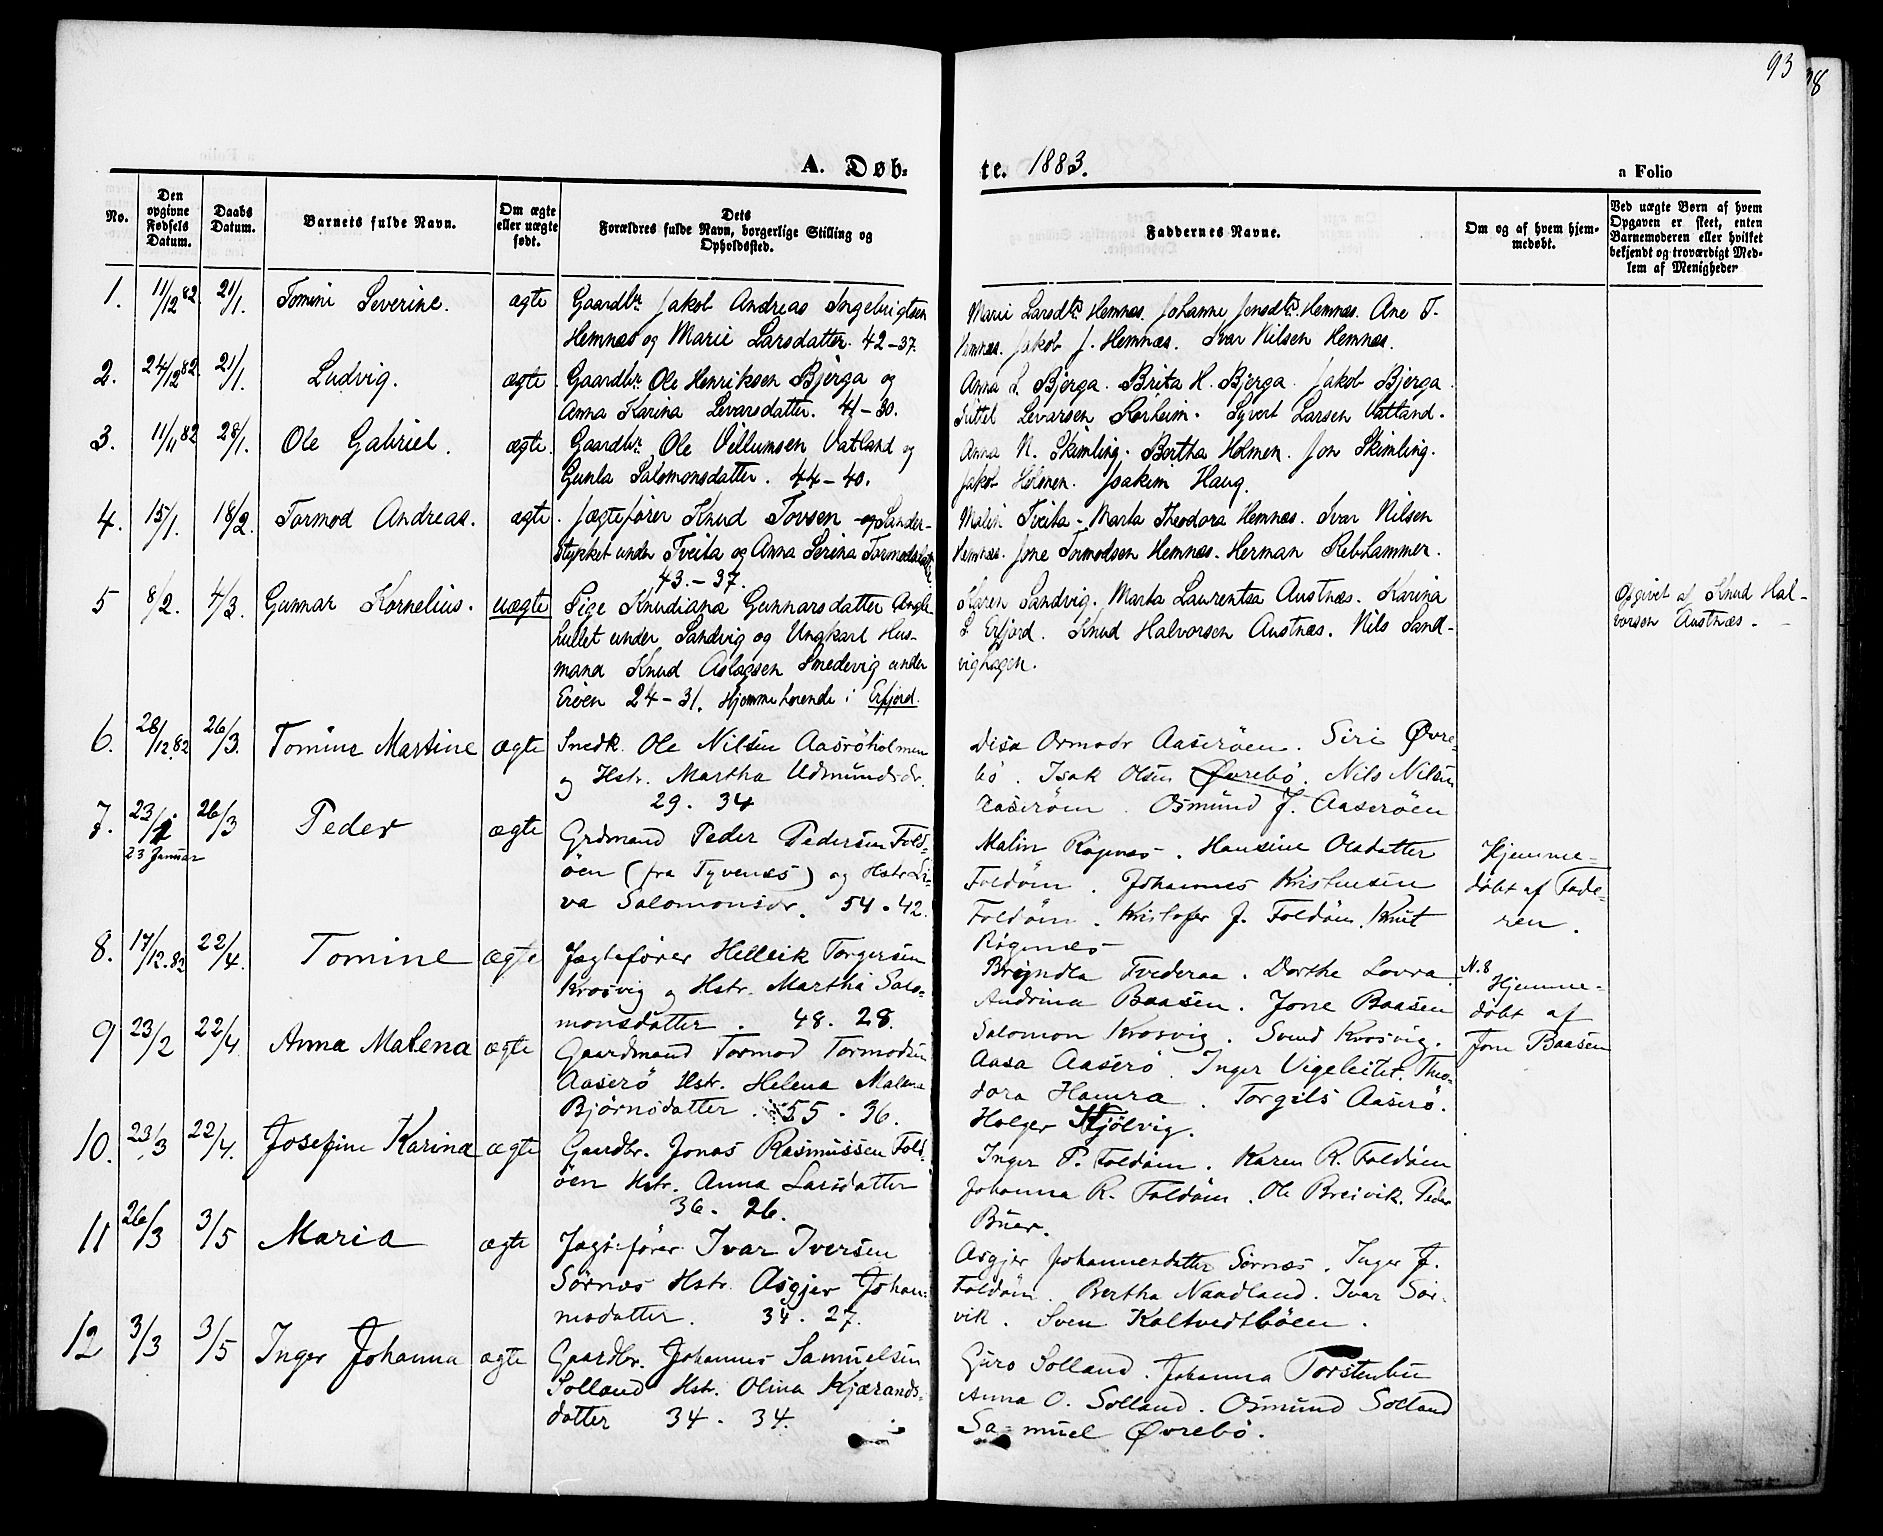 93
98
A. Døb-
te. 1883.
a Folio
No.
Den opgivne Fødsels Datum.
Daabs Datum.
Barnets fulde Navn.
Om ægte eller uægte født.
Dets Forældres fulde Navn, borgerlige Stilling og Opholdssted.
Faddernes Navne.
Om og af hvem hjemmedøbt.
Ved uægte Børn af hvem Opgaven er skeet, enten Barnemoderen eller hvilket bekjendt og troværdigt Medlem af Menigheder
1. 11/12 82. 21/1. Tomine Severine. ægte Gaardbr. Jakob Andreas Ingebrigtsen
Hemnæs og Marie Larsdatter. 42-37.
Marie Larsdtr. Hemnæs. Johanne Jonsdtr. Hemnæs. Ane T.
Hemnæs. Jakob J. Hemnæs. Ivar Nilsen Hemnæs.
2. 24/12 82. 21/1. Ludvig. ægte. Gaardbr. Ole Henriksen Bjerga og
Anna Karina Levarsdatter. 41-30.
Anna L. Bjerga. Brita H. Bjerga. Jakob Bjerga.
Sittel Levarsen Sørheim. Syvert Larsen Vatland.
3. 11/11 82 28/1. Ole Gabriel. ægte. Gaardbr. Ole Villumsen Vatland og
Gunla Salomonsdatter. 44-40.
Anna N. Skimling. Bertha Holmen. Jon Skimling.
Jakob Holmen. Joakim Haug.
4. 15/1. 18/2. Tormod Andreas. ægte. Jægtefører Knud Tovsen og Sander-
stykket under Tveita og Anna Serina Tormodsdatter
43.-37.
Malin Tveita. Marta Theodora Hemnæs. Ivar Nilsen
Hemnæs. Jone Tormodsen Hemnæs. Herman Reb.
5 8/2. 4/3. Gunnar Kornelius. uægte Pige Knudiana Gunnarsdatter Angle-
hullet under Sandvig og Ungkarl Hus-
mand Knud Aslagsen Smedevig under
Erøen 24-31. Hjemmehørende i Erfjord.
Karen Sandvig. Marta Laurentsa Austnæs. Karina
L. Erfjord. Knud Halvorsen Austnæs. Nils Sand-
vighagen.
Opgivet af Knud Hal-
vorsen Austnæs.
6. 28/12.82 26/3. Tomine Martine ægte Snedk. Ole Nilsen Aasrøholmen
og Hstr. Martha Udmundsdr.
29. 34
Disa Ormsdr Aaserøen. Siri Øvre-
bø. Isak Olsen Øvrebø. Nils Nilsen
Aaserøen. Osmund J. Aaserøen
7. 23/1 26/3 Peder ægte Grdmand Peder Pedersen Fold-
23 Januar
øen (fra Tyvenes) og Hstr. Si-
va Salomonsdr. 54. 42.
Malin Røgenes. Hansine Olsdatter
Foldøen. Johannes Kristensen
Foldøen. Kristofer J. Foldøen. Knut
Røgenæs
Hjemme-
døbt af Fade-
ren.
8. 17/12.82 22/4. Tomine ægte Jægtefører Helleik Torgersen
Krosvig og Hstr. Martha Salo-
monsdatter. 48. 28.
Bryndla Frederaa. Dorthe Lovra
Andrina Baasen. Jone Baasen
Salomon Krosvig. Svend Krosvig.
N. 8
Hjemme-
døbt af
Jone Baasen
9 23/2 22/4 Anna Malena ægte Gaardmand Tormod Tormodsen
Aaserø Hstr. Helena Malena
Bjørnsdatter. 55. 36.
Aasa Aaserø. Inger Vigeleitet. Theo-
dora Hamra. Torgils Aaserø.
Holger Kjølvig.
10. 23/3 22/4. Josefine Karina ægte Gaardbr. Jonas Rasmussen Fold-
øen Hstr. Anna Larsdatter
36. 26.
Inger P. Foldøen. Karen R. Foldøen
Johanna R. Foldøen. Ole Breivik. Peder
Buer.
11 26/3 3/5 Maria ægte Jægtefører Ivar Iversen
Sørnæs Hstr. Asgjer Johan-
nesdatter. 34. 27.
Asgjer Johannesdatter Sørnæs. Inger J.
Foldøen. Bertha Nandland. Ivar Sør-
vik. Sven Kaltvedtbøen.
12 3/3 3/5 Inger Johanna ægte Gaardbr. Johannes Samuelsen
Solland Hstr. Olina Kjærands-
datter 34. 34.
Guro Solland. Johanna Torstenbu
Anna O. Solland. Osmund Solland
Samuel Øvrebø.